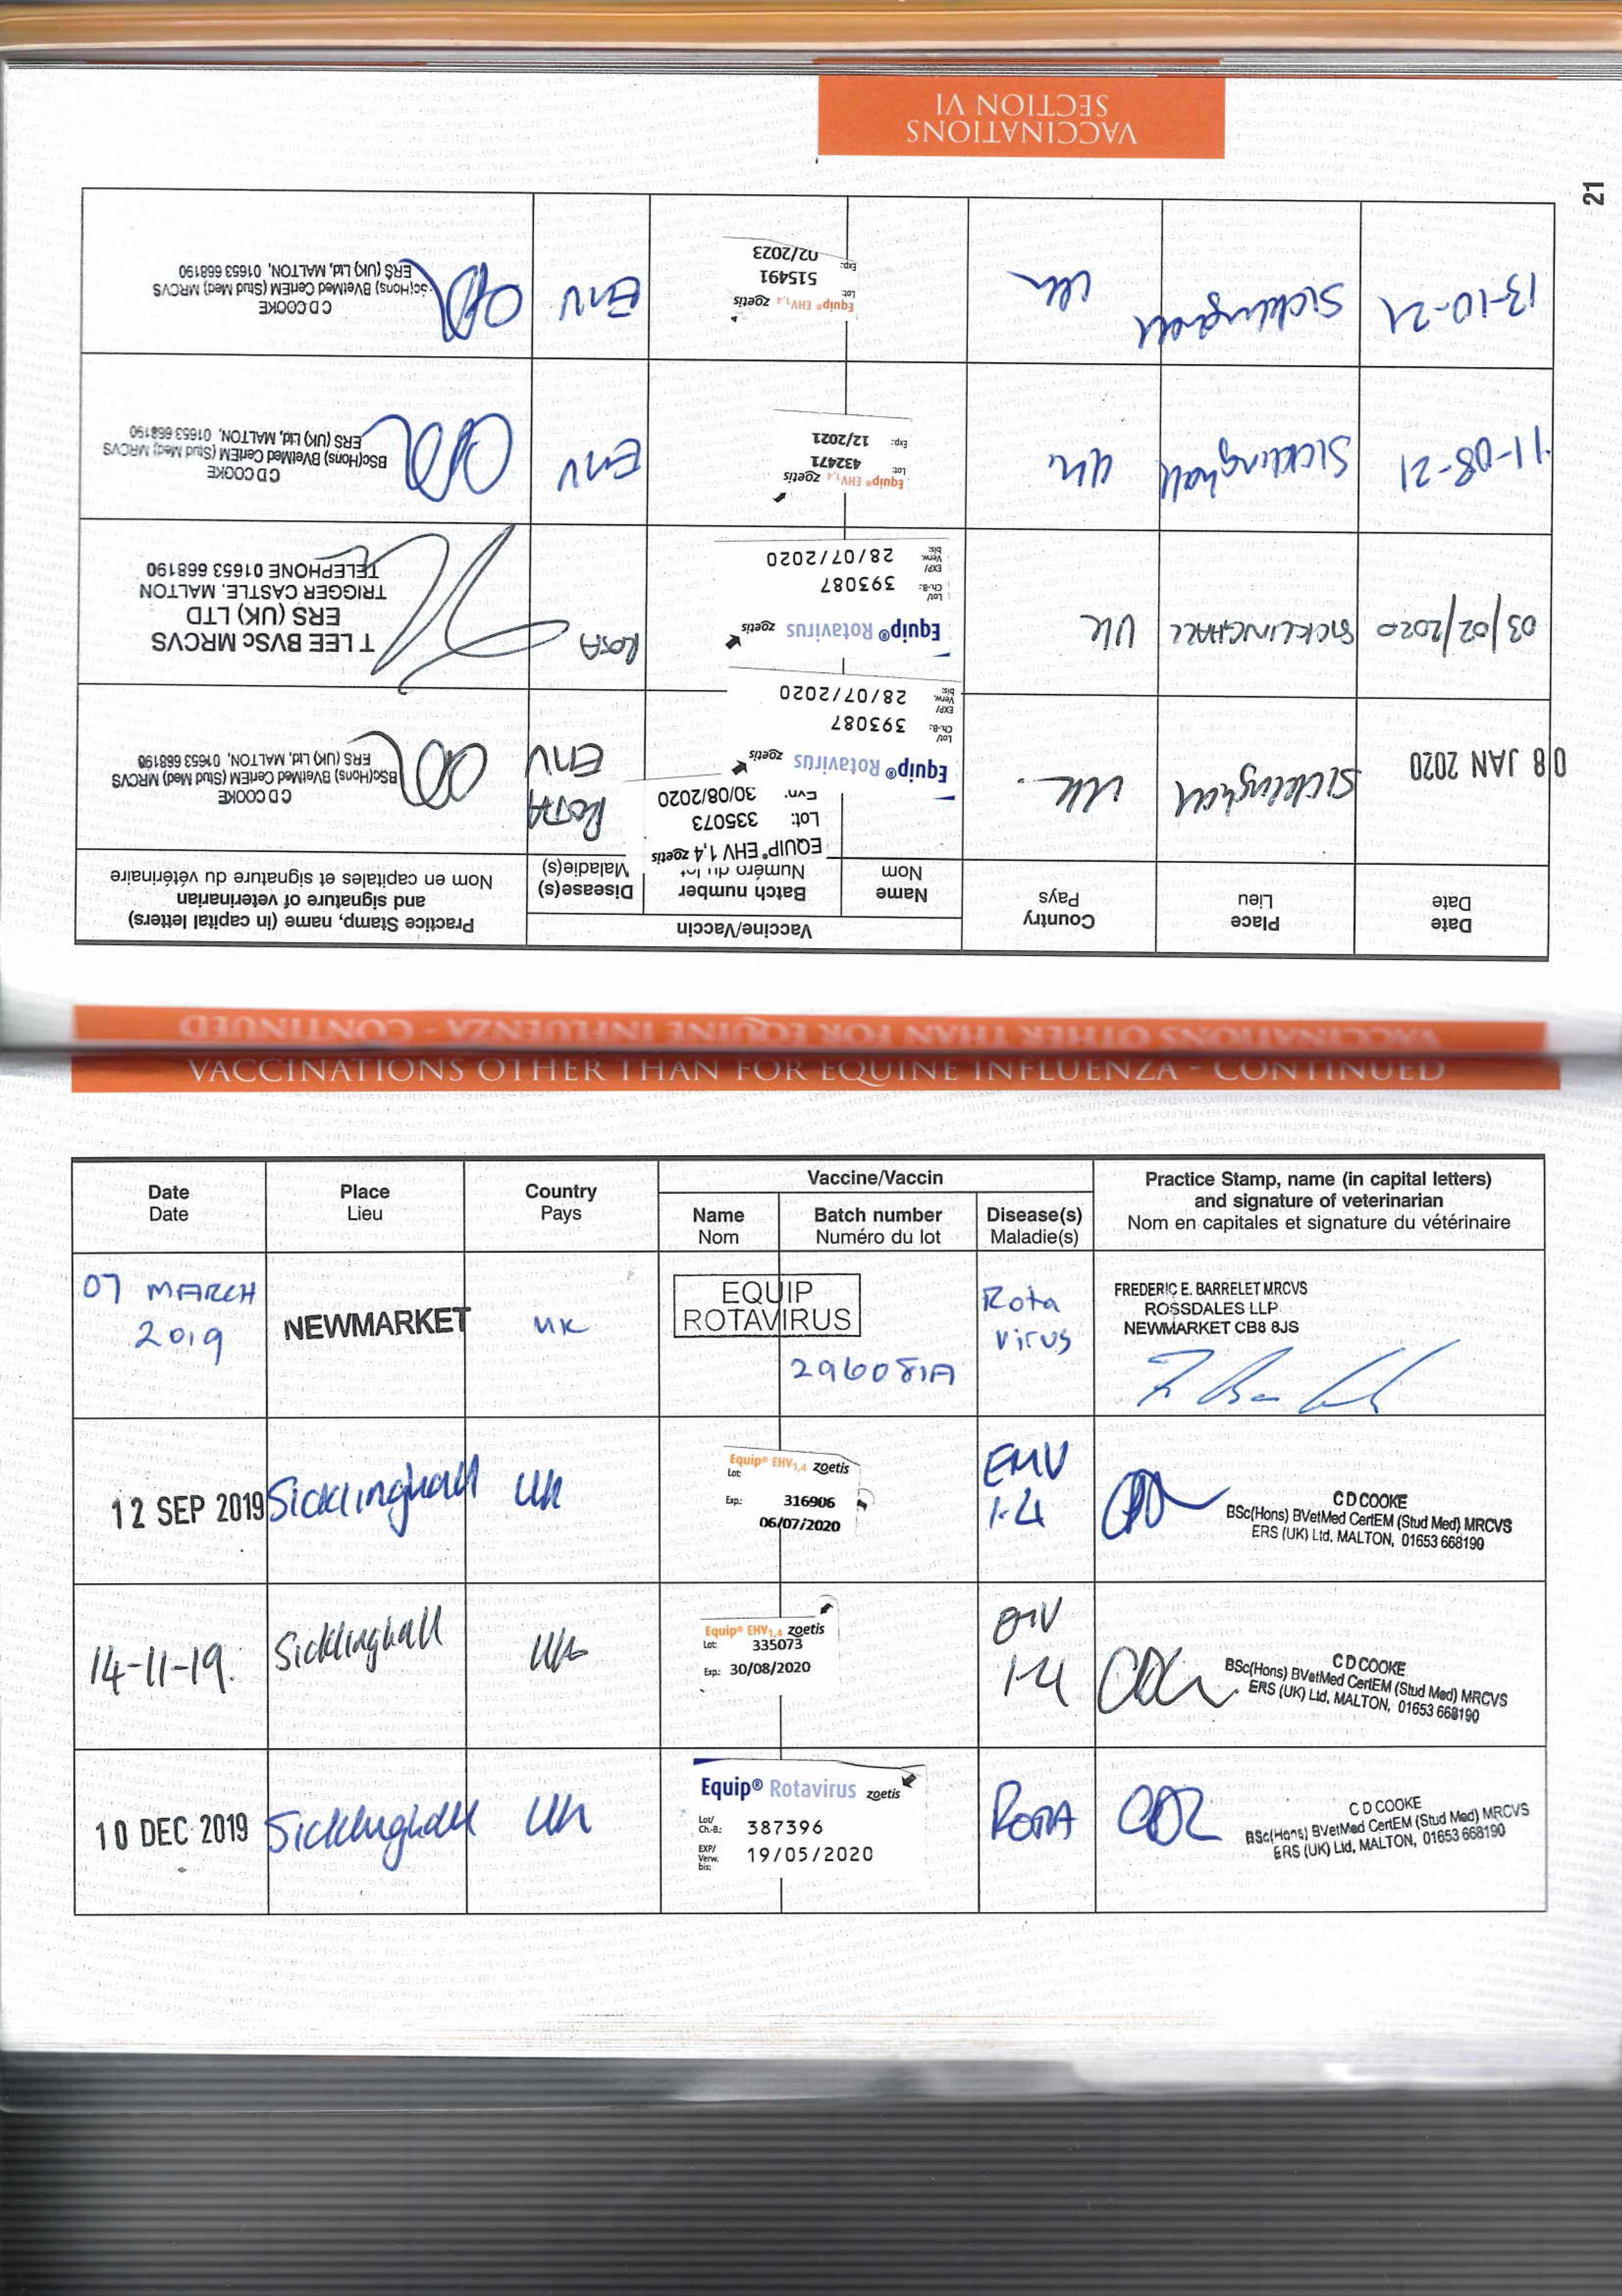 VACCINATIONS OTHER THAN FOR EQUINE INFLUENZA - CONTINUED
Date
Date
Place
Lieu
Country
Pays
Vaccine/Vaccin
Name
Nom
Batch number
Numéro du lot
Disease(s)
Maladie(s)
Practice Stamp, name (in capital letters)
and signature of veterinarian
Nom en capitales et signature du vétérinaire
07 MARCH
2019
NEWMARKET
UK
EQUIP
ROTAVIRUS
296081A
Rota
Virus
FREDERIC E. BARRELET MRCVS
ROSSDALES LLP
NEWMARKET CB8 8JS
12 SEP 2019
Sicklinghall
UK
Equip® EHV1,4 zoetis
Lot:
Exp: 316906
06/07/2020
EHV
1-4
C D COOKE
BSc(Hons) BVetMed CertEM (Stud Med) MRCVS
ERS (UK) Ltd, MALTON, 01653 668190
14-11-19.
Sicklinghall
UK
Equip® EHV1,4 zoetis
Lot: 335073
Exp: 30/08/2020
EHV
1-4
C D COOKE
BSc(Hons) BVetMed CertEM (Stud Med) MRCVS
ERS (UK) Ltd, MALTON, 01653 668190
10 DEC 2019
Sicklinghall
UK
Equip® Rotavirus zoetis
Lot/
Ch.-B.: 387396
EXP/
Verw.
bis: 19/05/2020
ROTA
C D COOKE
BSc(Hons) BVetMed CertEM (Stud Med) MRCVS
ERS (UK) Ltd, MALTON, 01653 668190
VACCINATIONS OTHER THAN FOR EQUINE INFLUENZA - CONTINUED
Date
Date
Place
Lieu
Country
Pays
Vaccine/Vaccin
Name
Nom
Batch number
Numéro du lot
Disease(s)
Maladie(s)
Practice Stamp, name (in capital letters)
and signature of veterinarian
Nom en capitales et signature du vétérinaire
08 JAN 2020
Sicklinghall
UK
EQUIP® EHV 1,4 zoetis
Lot: 335073
30/08/2020
Equip® Rotavirus zoetis
Lot/
Ch.-B.: 393087
EXP/
Verw.
bis: 28/07/2020
ROTA
EHV
C D COOKE
BSc(Hons) BVetMed CertEM (Stud Med) MRCVS
ERS (UK) Ltd, MALTON, 01653 668190
03/02/2020
SICKLINGHALL
UK
Equip® Rotavirus zoetis
Lot/
Ch.-B.: 393087
EXP/
Verw.
bis: 28/07/2020
ROTA
T LEE BVSc MRCVS
ERS (UK) LTD
TRIGGER CASTLE, MALTON
TELEPHONE 01653 668190
11-08-21
Sicklinghall
UK
Equip® EHV1,4 zoetis
Lot: 432471
Exp: 12/2021
EHV
C D COOKE
BSc(Hons) BVetMed CertEM (Stud Med) MRCVS
ERS (UK) Ltd, MALTON, 01653 668190
13-10-21
Sicklinghall
UK
Equip® EHV1,4 zoetis
Lot: 515491
Exp: 02/2023
EHV
C D COOKE
Sc(Hons) BVetMed CertEM (Stud Med) MRCVS
ERS (UK) Ltd, MALTON, 01653 668190
VACCINATIONS
SECTION VI
21